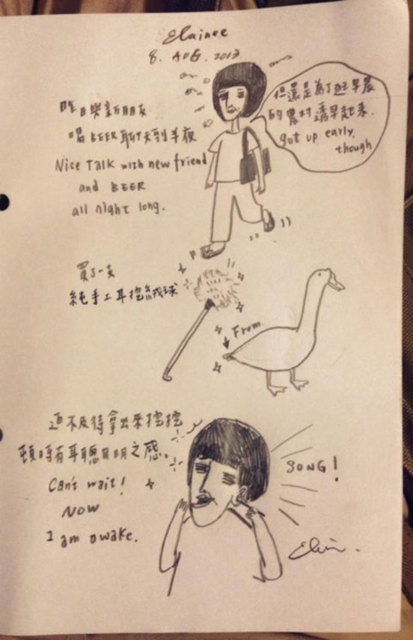 Elainee
8. AUG. 2013
昨日與新朋友
喝BEER聊天到半夜
Nice Talk with new friend
and BEER
all night long.
但還是為了逛早晨
的農村還早起來.
got up early,
though
買了一支
純手工耳挖絨球
From
迫不及待拿出來挖挖
頓時有耳聰目明之感.
Can't wait!
NOW
I am awake.
SONG!